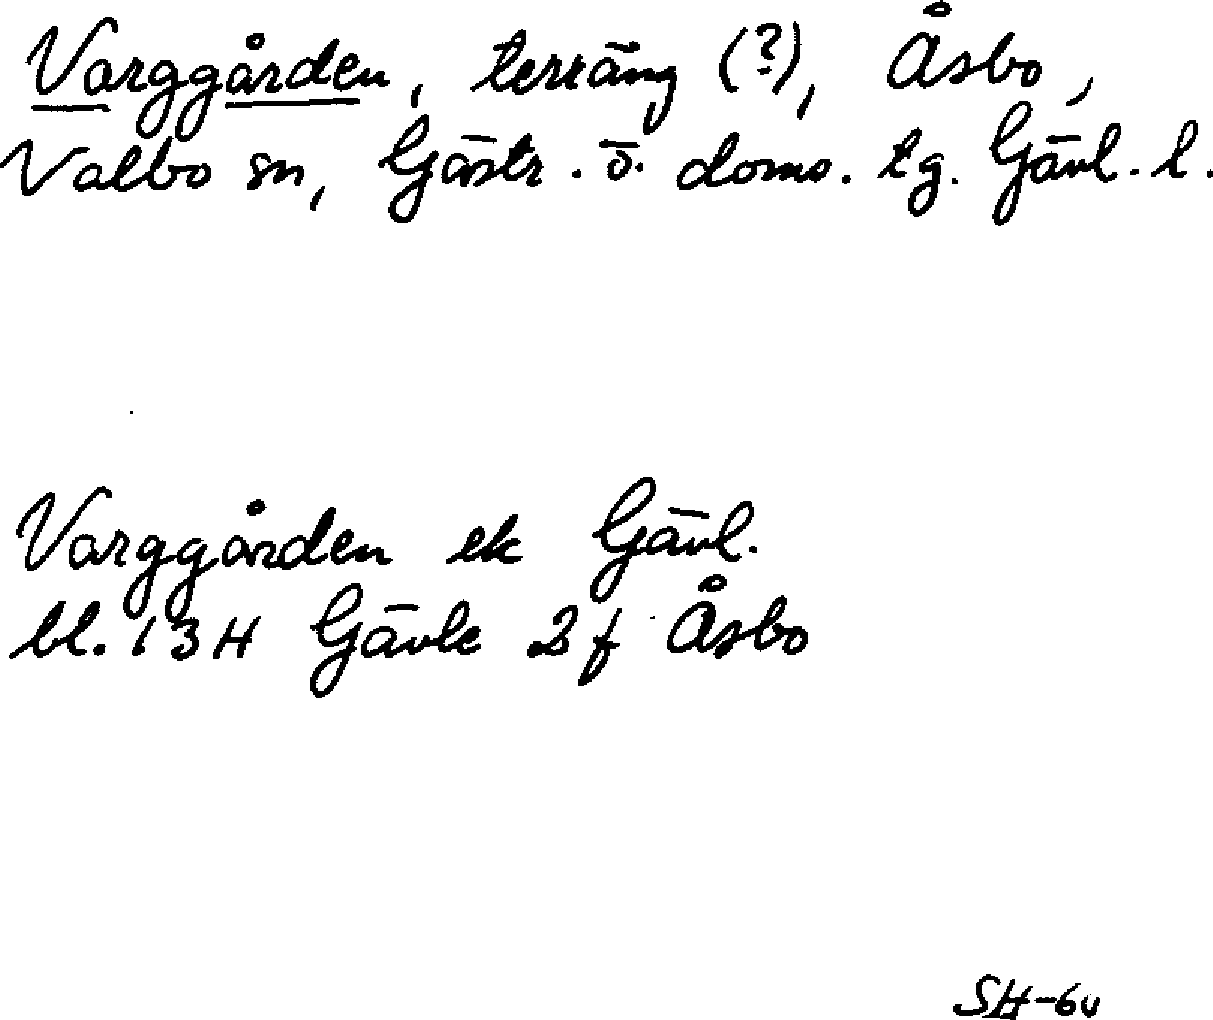 Varggården, terräng (?), Åsbo,
Valbo sn, Gästr. ö. doms. tg. Gävl. l.
Varggården ek Gävl.
bl. 13H Gävle 2f Åsbo